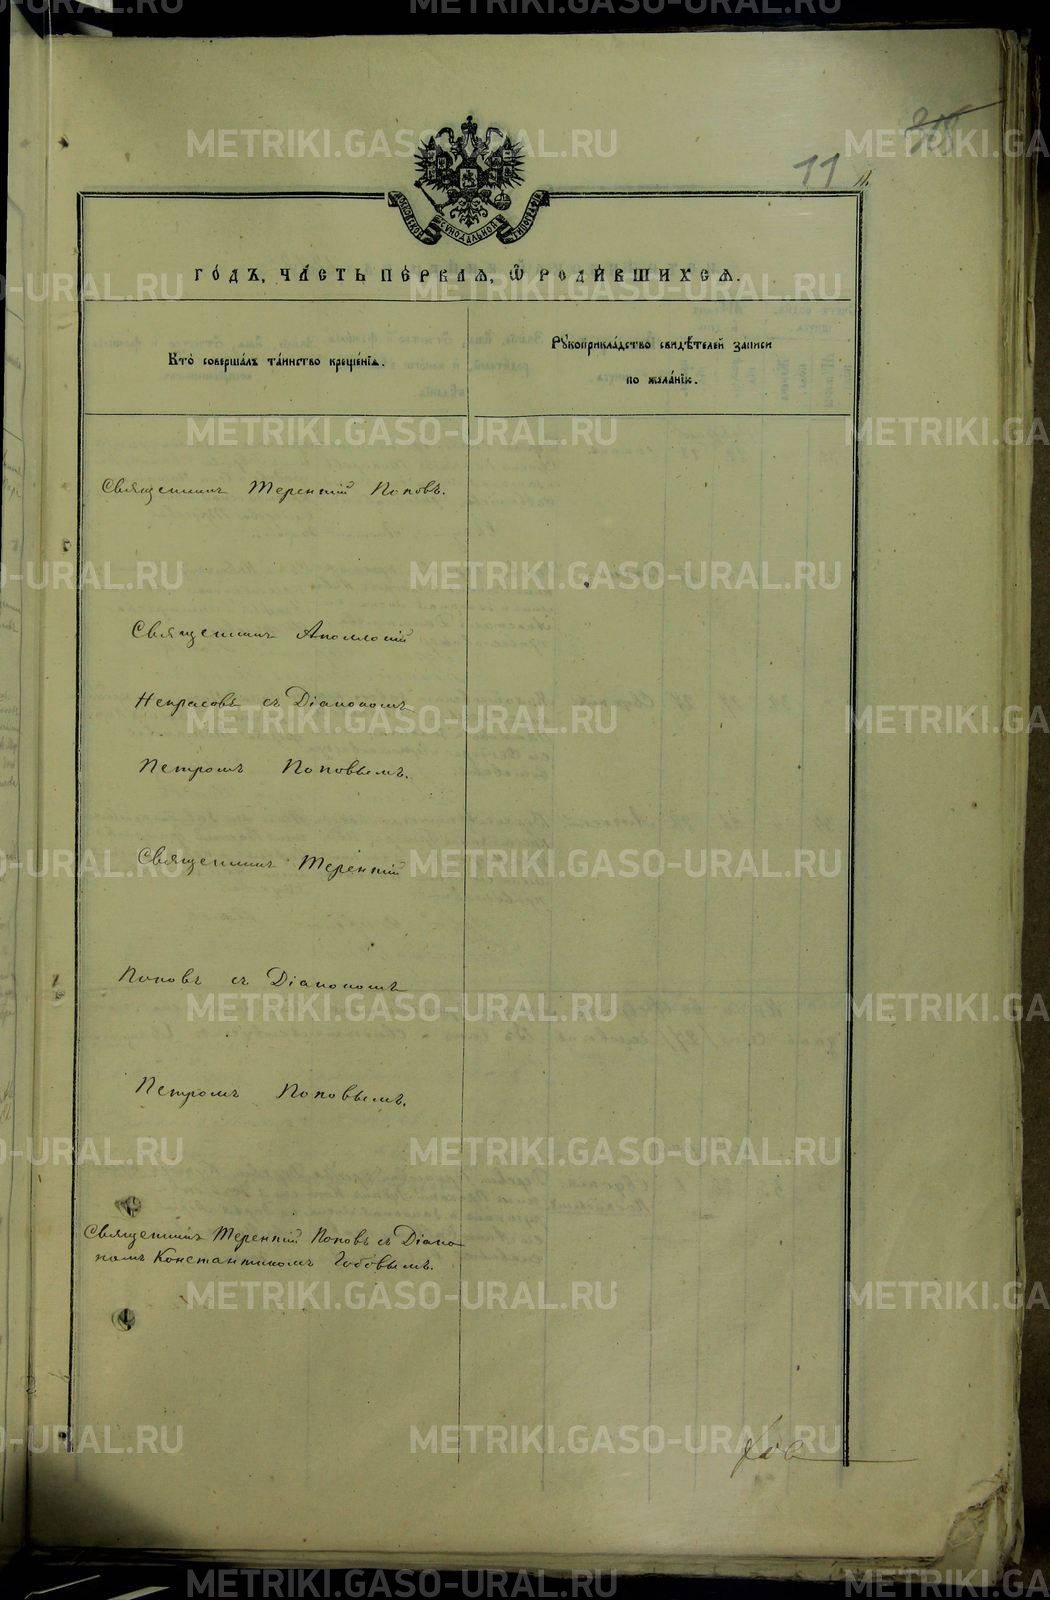 11
МОСКОВСКОЙ СѴНОДАЛЬНОЙ ТИПОГРАФІИ
ГОДЪ, ЧАСТЬ ПЕРВАЯ, Ѽ РОДИВШИХСЯ.
Кто совершалъ таинство крещенія.
Рꙋкоприкладство свидѣтелей записи
по желанію.
Священникъ Терентій Поповъ.
Священникъ Аполлоній
Некрасовъ съ Діакономъ
Петромъ Поповымъ.
Священникъ Терентій
Поповъ съ Діакономъ
Петромъ Поповымъ.
Священникъ Терентій Поповъ съ Діако
номъ Константиномъ
METRIKI.GASO-URAL.RU